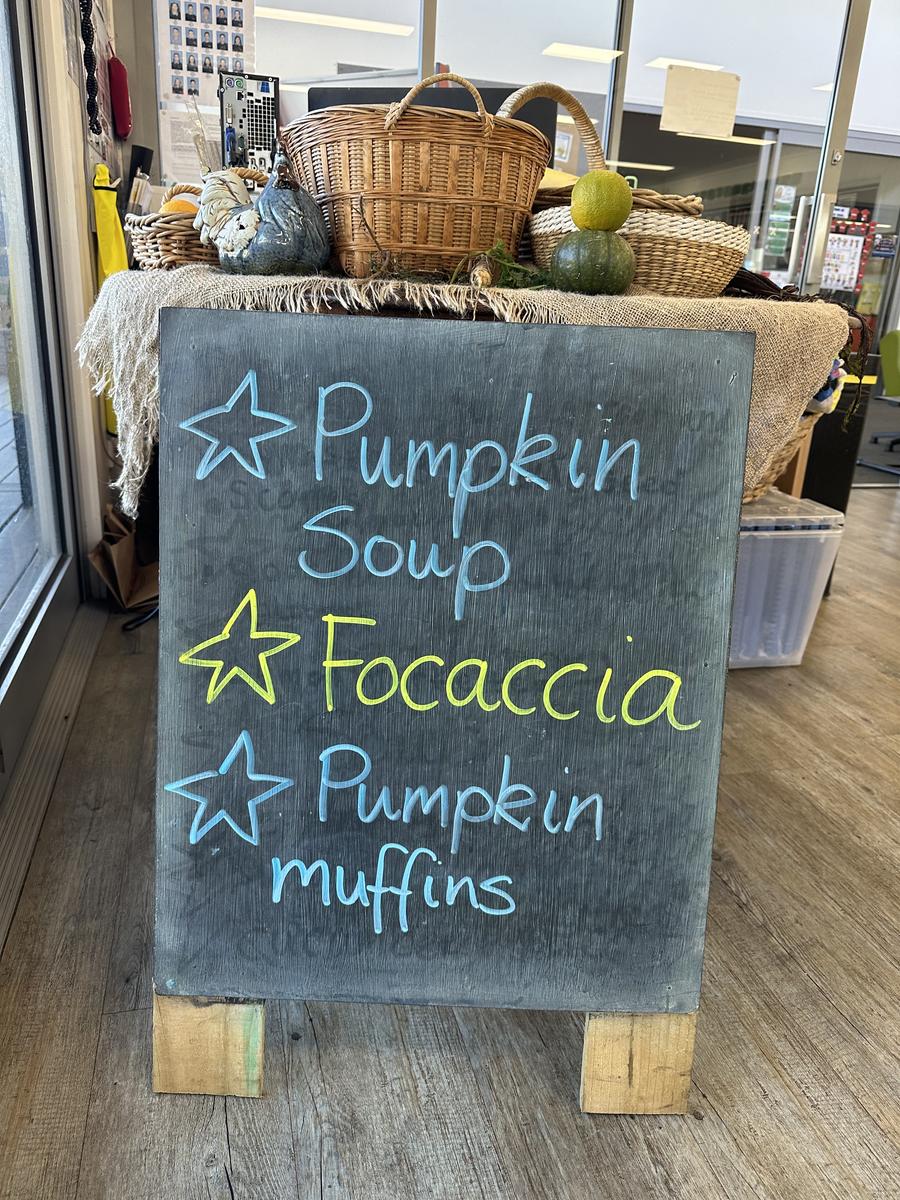 Pumpkin
Soup
Focaccia
Pumpkin
muffins